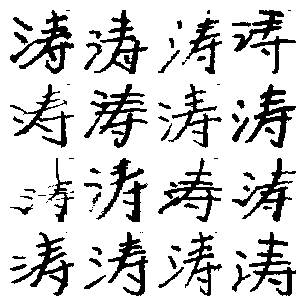 涛涛涛涛
涛涛涛涛
涛涛涛涛
涛涛涛涛